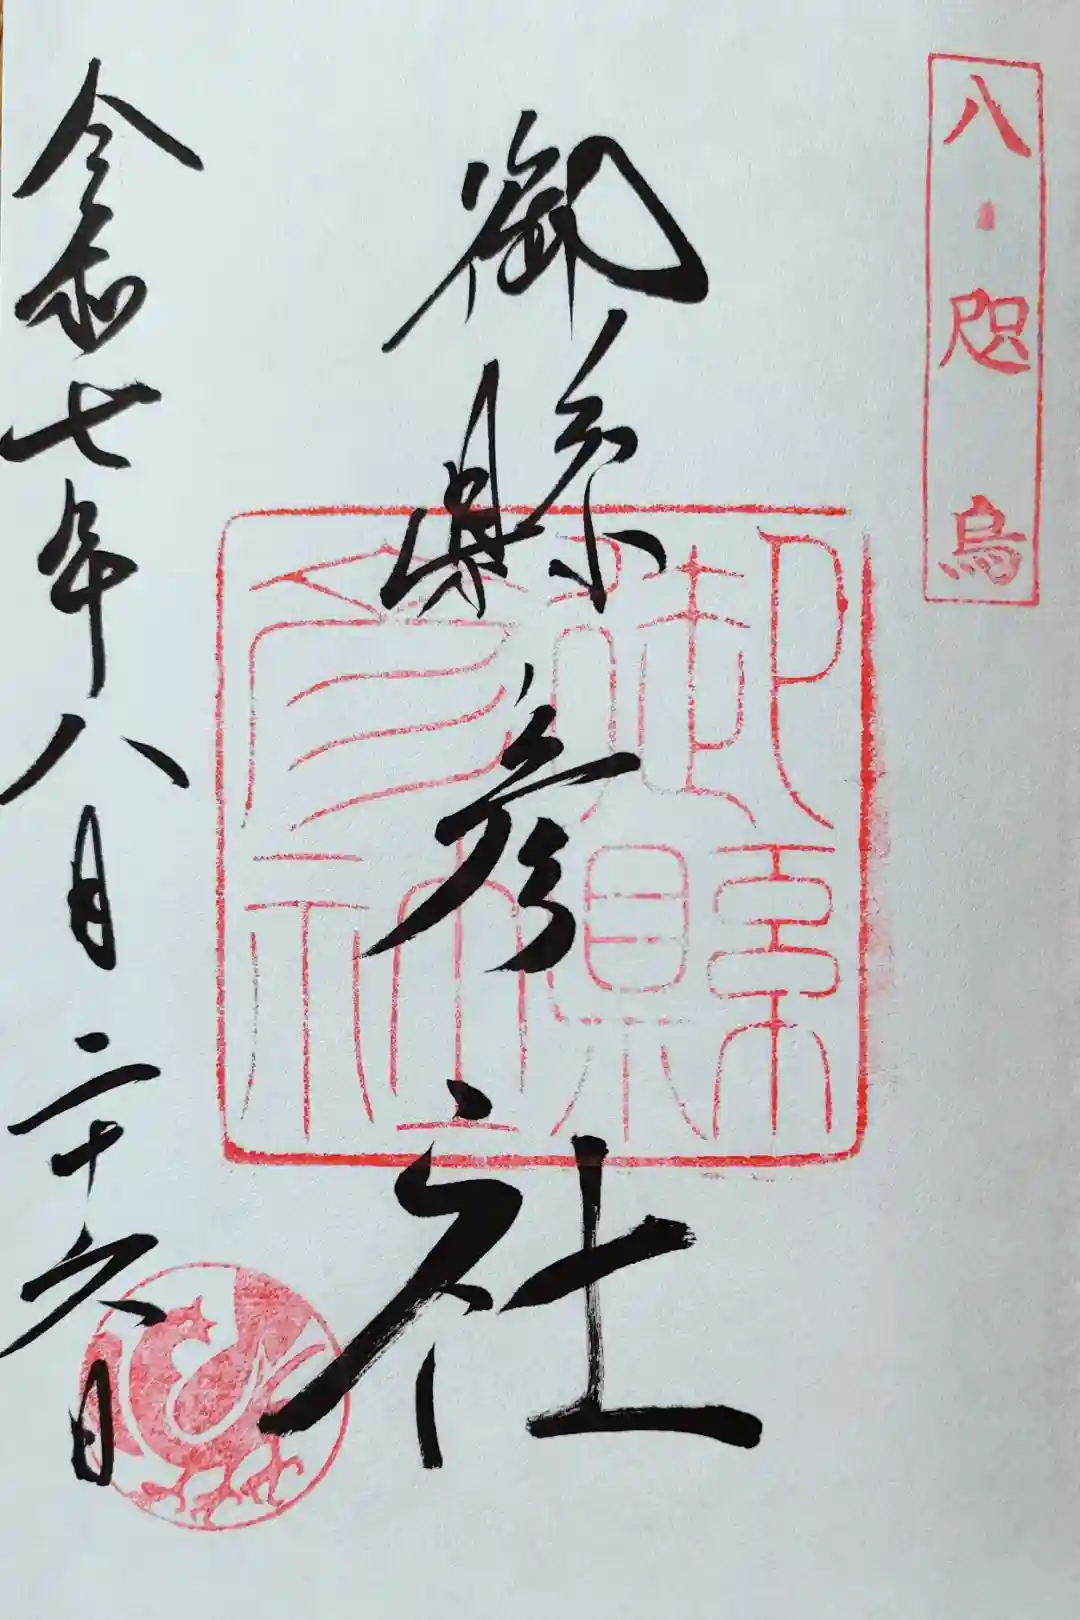 八・咫烏
御縣彦社
御縣彦社
令和七年八月二十六日